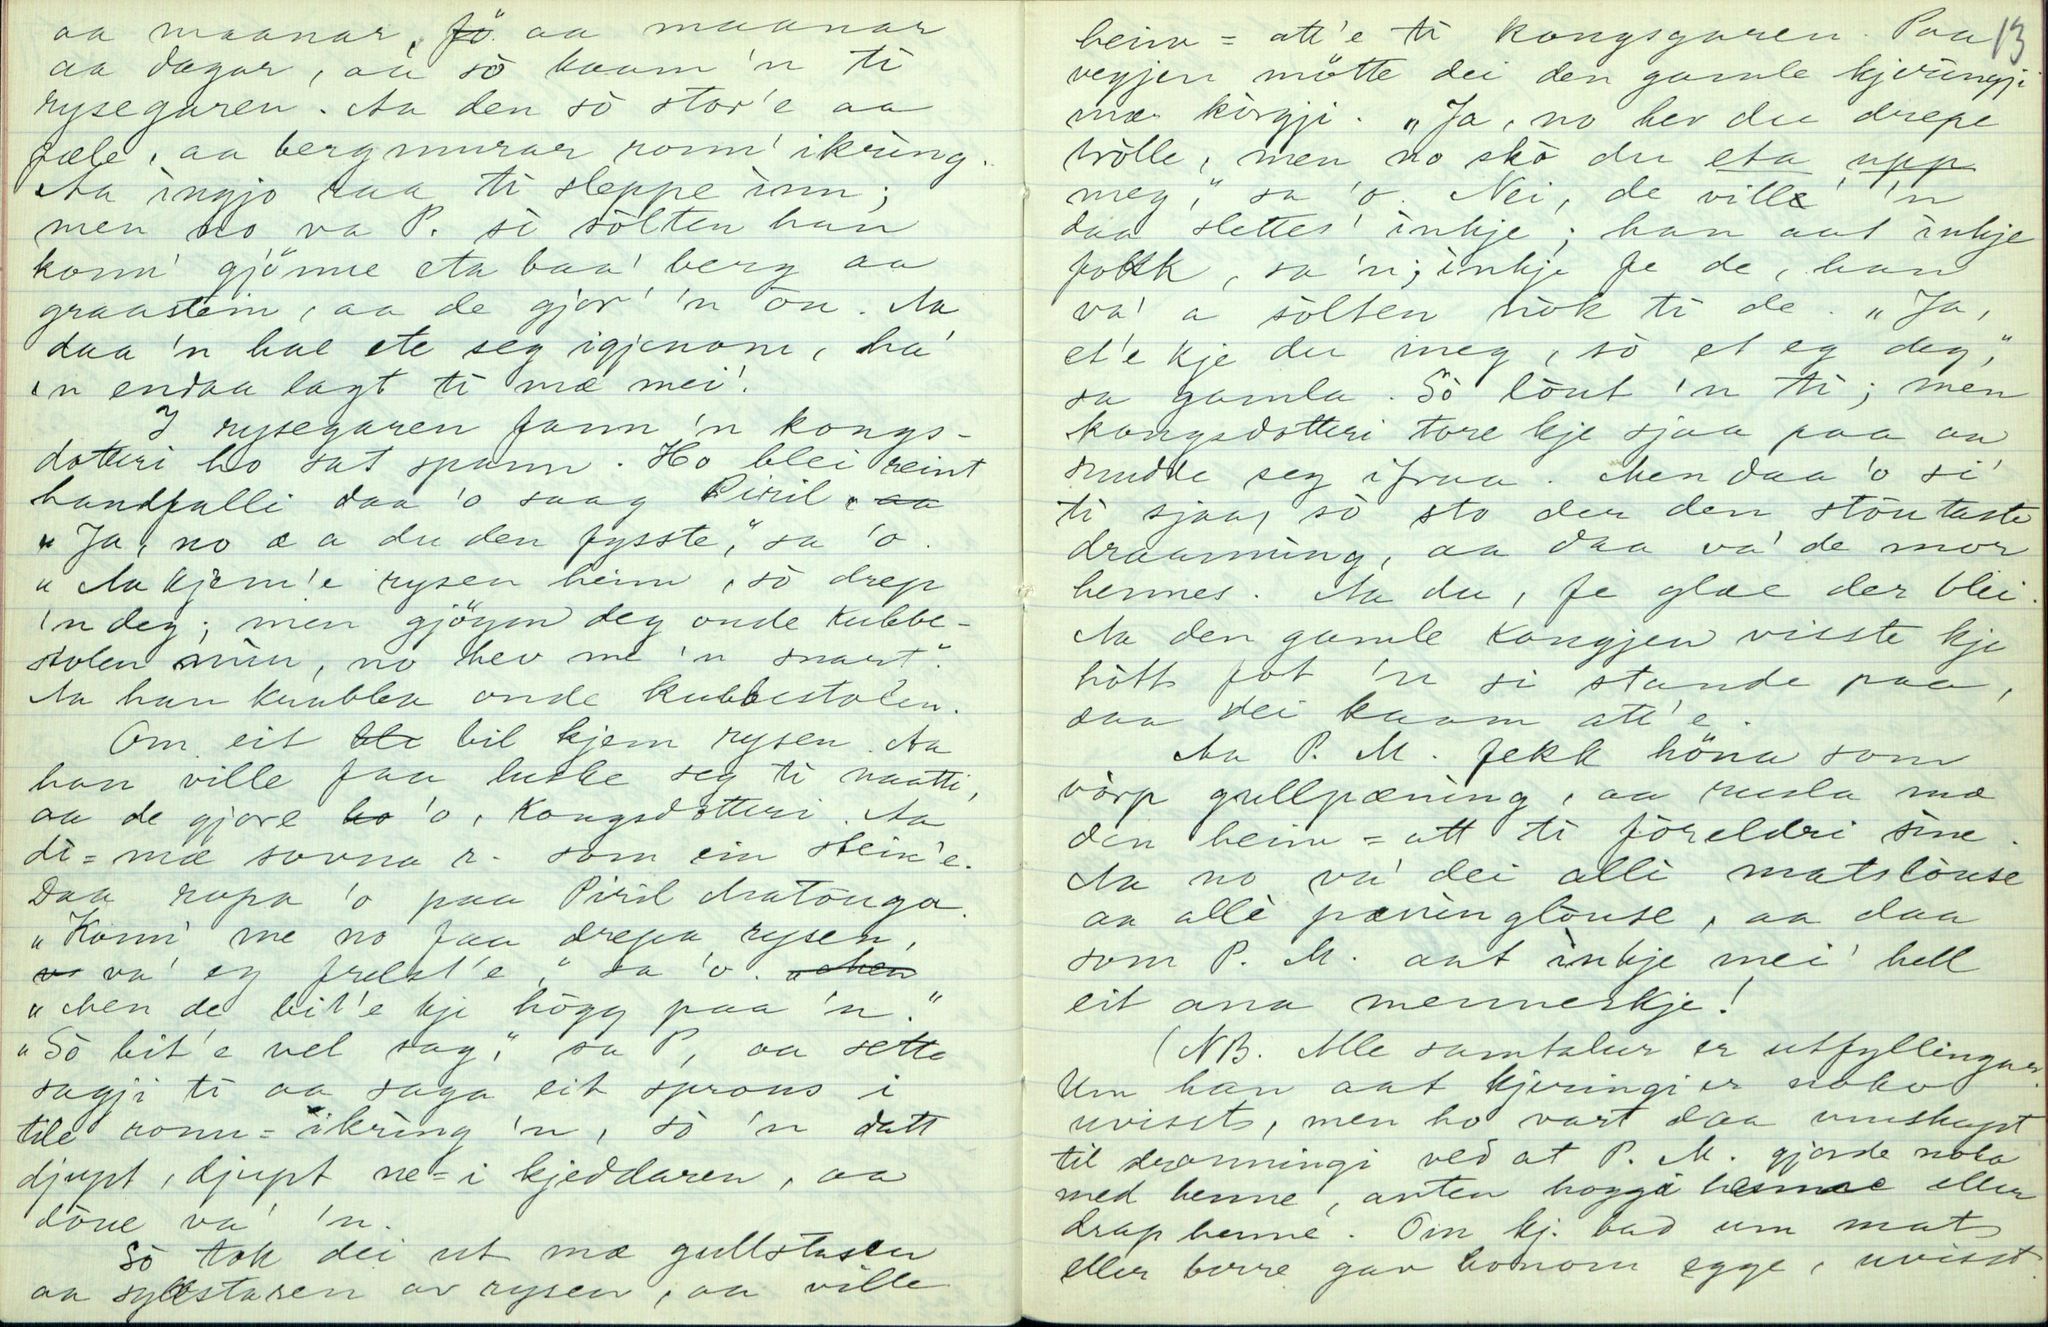 aa maanar, fö aa maanar
aa dagar, aa sò kaam 'n ti
rysegaren. Aa den sò stor'e aa
fæle, aa bergmurar ronn' ikring.
Aa ingjo raa ti sleppe inn;
men no va P. si sòlten han
konn' gjönne eta baa' berg aa
graastein, aa de gjor' 'n òu. Aa
daa 'n hae ete seg igjenom, ha'
'n endaa lagt ti mæ mei'.
I rysegaren fann 'n kongs-
dotteri ho sat spann. Ho blei reint
handfalli daa 'o saag Piril, aa
"Ja, no æ a du den fysste," sa 'o.
"Aa kjem'e rysen heim, sò drep
'n deg; men gjöym deg onde kubbe-
stolen min, no hev me 'n snart".
Aa han knabba onde kubbestolen.
Om eit bli bil kjem rysen. Aa
han ville faa luske seg ti naatti,
aa de gjore ho 'o, kongsdotteri. Aa
di=mæ sovna r. som ein stein'e.
Daa ropa 'o paa Piril Matòuga.
"Konn' me no faa drepa rysen,
va' eg frelst'e," sa 'o. "Men
"Men de bit'e kje högg paa 'n."
"Sò bit'e vel sag," sa P, aa sette
sagji ti aa saga eit sprous i
tile ronn=ikring 'n, sò 'n datt
djupt, djupt ne=i kjeddaren, aa
döue va' 'n.
Sò tok dei ut mæ gullstasen
aa syllstasen av rysen, aa ville
13
heim=att'e ti kongsgaren. Paa
vegjen mötte dei den gamle kjeringji
mæ kòrgji. "Ja, no hev du drepe
tròlle, men no skò du eta upp
meg," sa 'o. Nei, de ville' 'n
daa slettes' inkje; han aat inkje
folk, sa 'n; inkje fe de, han
va' a sòlten nòk ti de. "Ja,
et'e kje du meg, sò et eg deg,"
sa gamla. Sò lòut 'n ti; men
kongsdotteri tore kje sjaa paa aa
snudde seg ifraa. Men daa 'o si'
ti sjaa, sò sto der den stòutaste
draanning, aa daa va' de mor
hennes. Aa du, fe glæe der blei.
Aa den gamle kongjen visste kje
hòtt fot 'n si stande paa,
daa dei kaam att'e.
Aa P. M. fekk höna som
vòrp gullpæning, aa rusla mæ
den heim=att ti fòreldri sine.
Aa no va' dei alli matslòuse
aa alli pæninglòuse, aa daa
som P. M. aat inkje mei' hell
eit ana menneskje!
(NB. Alle samtalur er utfyllingar.
Um han aat kjeringi er noko
uvisst, men ho vart daa umskapt
til dronningi ved at P. M. gjorde noko
med henne, anten hoggi henne eller
drap henne. Om kj. bad um mat
eller berre gav honom egge, uvisst.